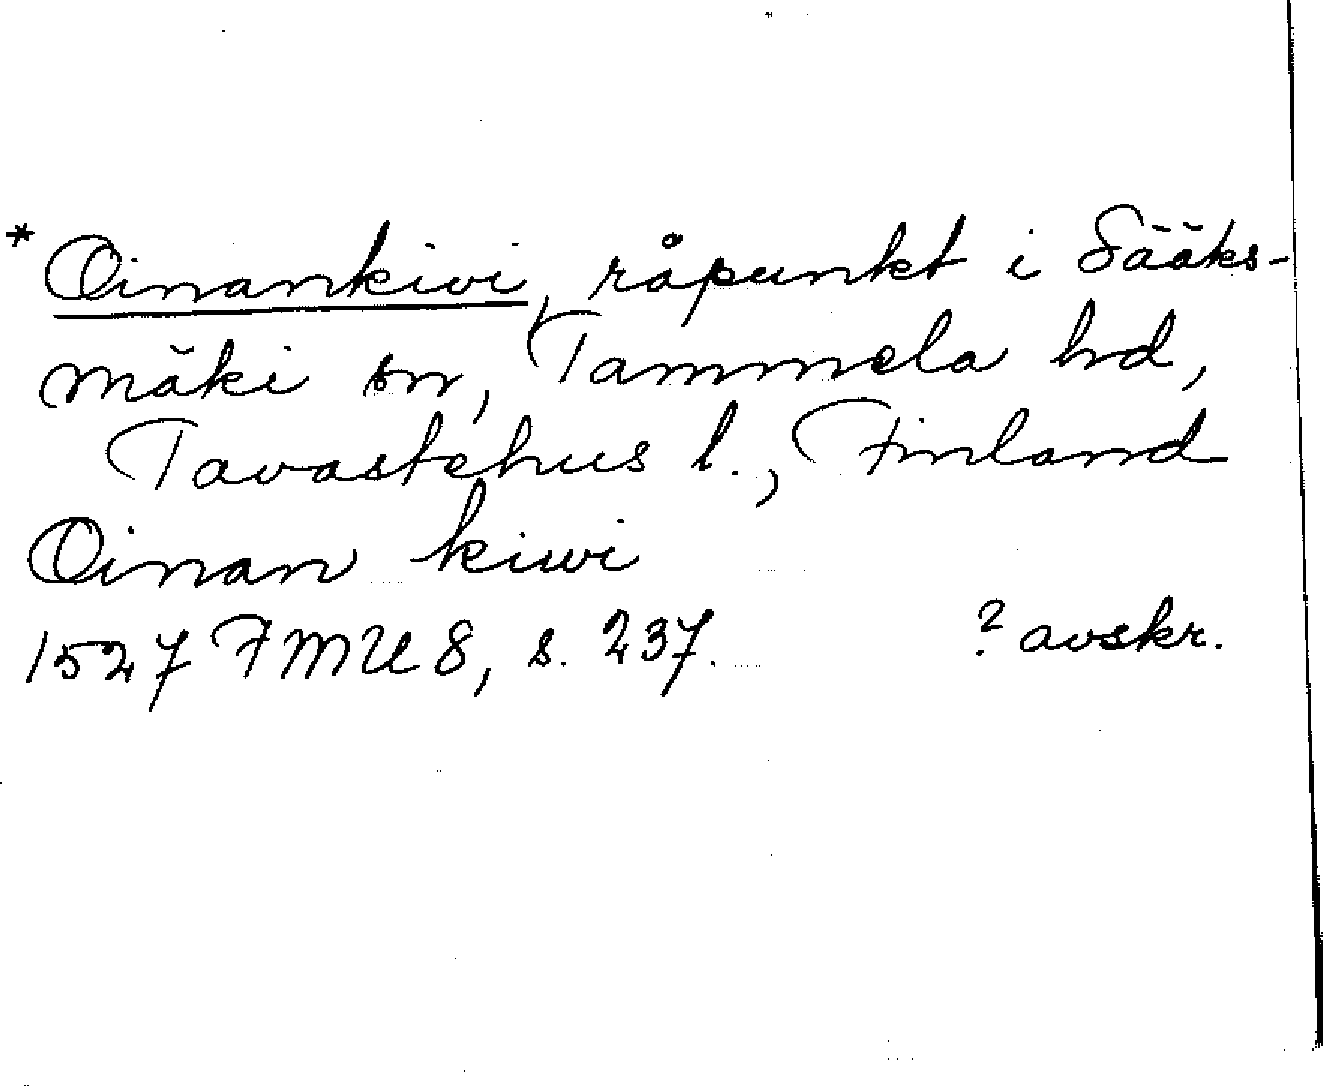 * Oinankivi, råpunkt i Sääks-
mäki sn, Tammela hd,
Tavastehus l., Finland
Oinan kiwi
1527 FMU 8, s. 237. ? avskr.